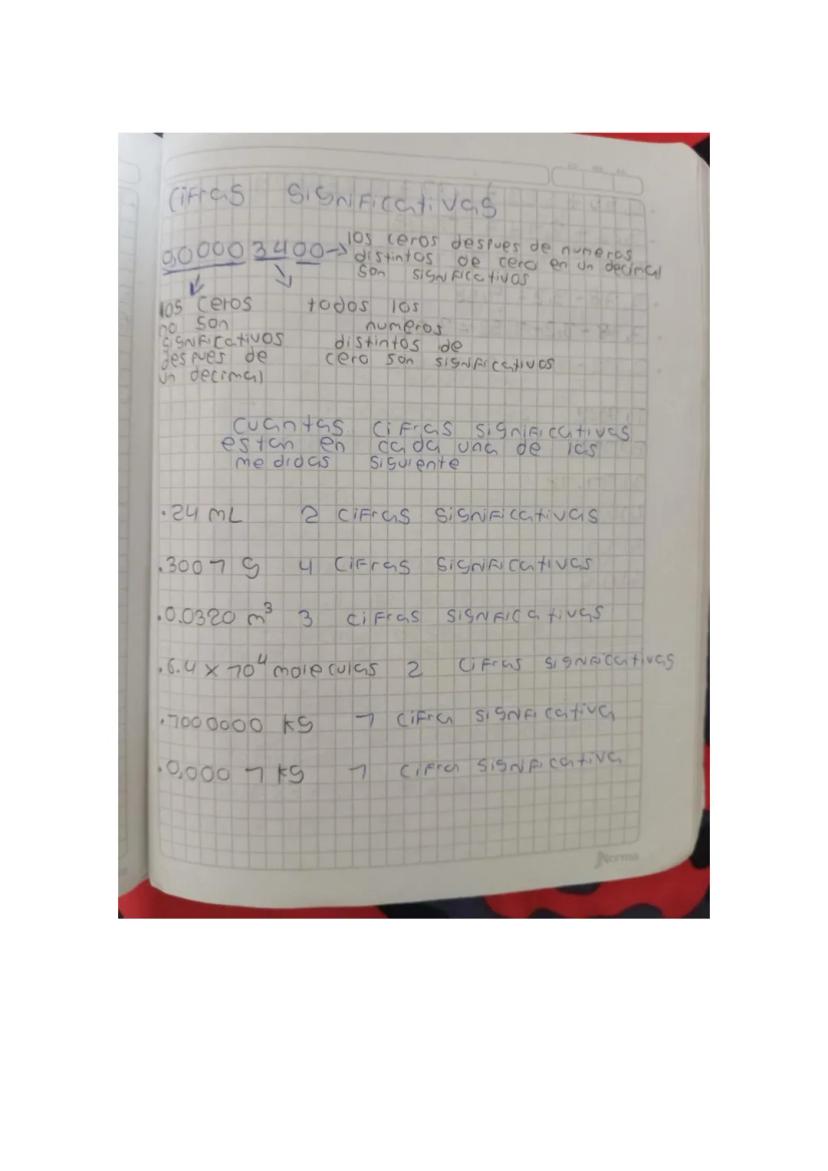 CIFras SIGNIFIcatIvas
0,00003400 → los ceros despues de numeros
distintos de cero en un decimal
son significativos
los ceros
no son
significativos
despues de
un decimal
todos los
numeros
distintos de
cero son significativos
cuantas cifras significativas
estan en cada una de las
medidas siguiente
.24 mL 2 cifras significativas
.3001 g 4 cifras significativas
.0.0320 m³ 3 cifras significativas
.6.4 x 10⁴ moleculas 2 cifras significativas
.1000000 kg 1 cifra significativa
.0,000 1 kg 1 cifra significativa
Norma